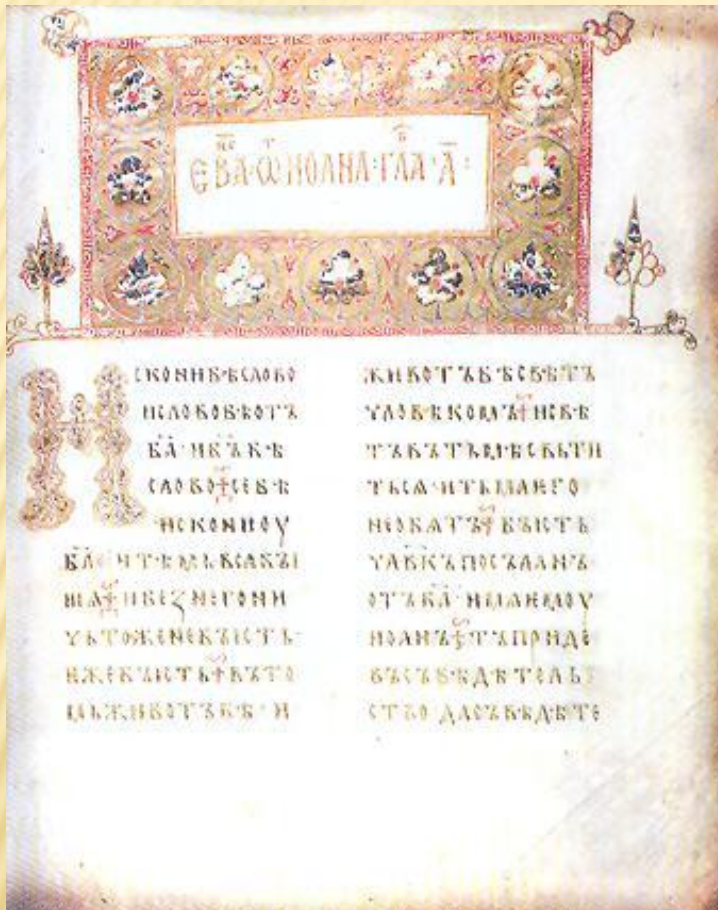 ЄВА҃ⷩ҇Ѿ ИОАНА·ГЛАⷡ·А҃:
ИСКОНИБѢСЛОВО
ИСЛОВОБѢОТЪ
Б҃А·ИБ҃ЪБѢ
СЛОВО⁘СЕБѢ
ИСКОНИОУ
Б҃А·ИТѢМЬВСѦБЪІ
ШѦ⁘ИБЕЗНЕГОНИ
ЧЬТОЖЕНЕБЪІСТЬ·
ѤЖЕБЪІСТЬ⁘ВЪТО
МЬЖИВОТЪБѢ·И
ЖИВОТЪБѢСВѢТЪ
ЧЛОВѢКОМЪ⁘ИСВѢ
ТЪВЪТЬМѢСВЬТИ
ТЬСѦ·ИТЬМАѤГО
НЕОБѦТЪ⁘БЪІСТЬ
ЧЛ҃ВКЪПОСЪЛАНЪ
ОТЪБ҃А·ИМѦѤМОУ
ИОАНЪ⁘ТЪПРИДЕ
ВЪСЪВѢДѢТЕЛЬ
СТВО·ДАСЪВѢДѢТЕ